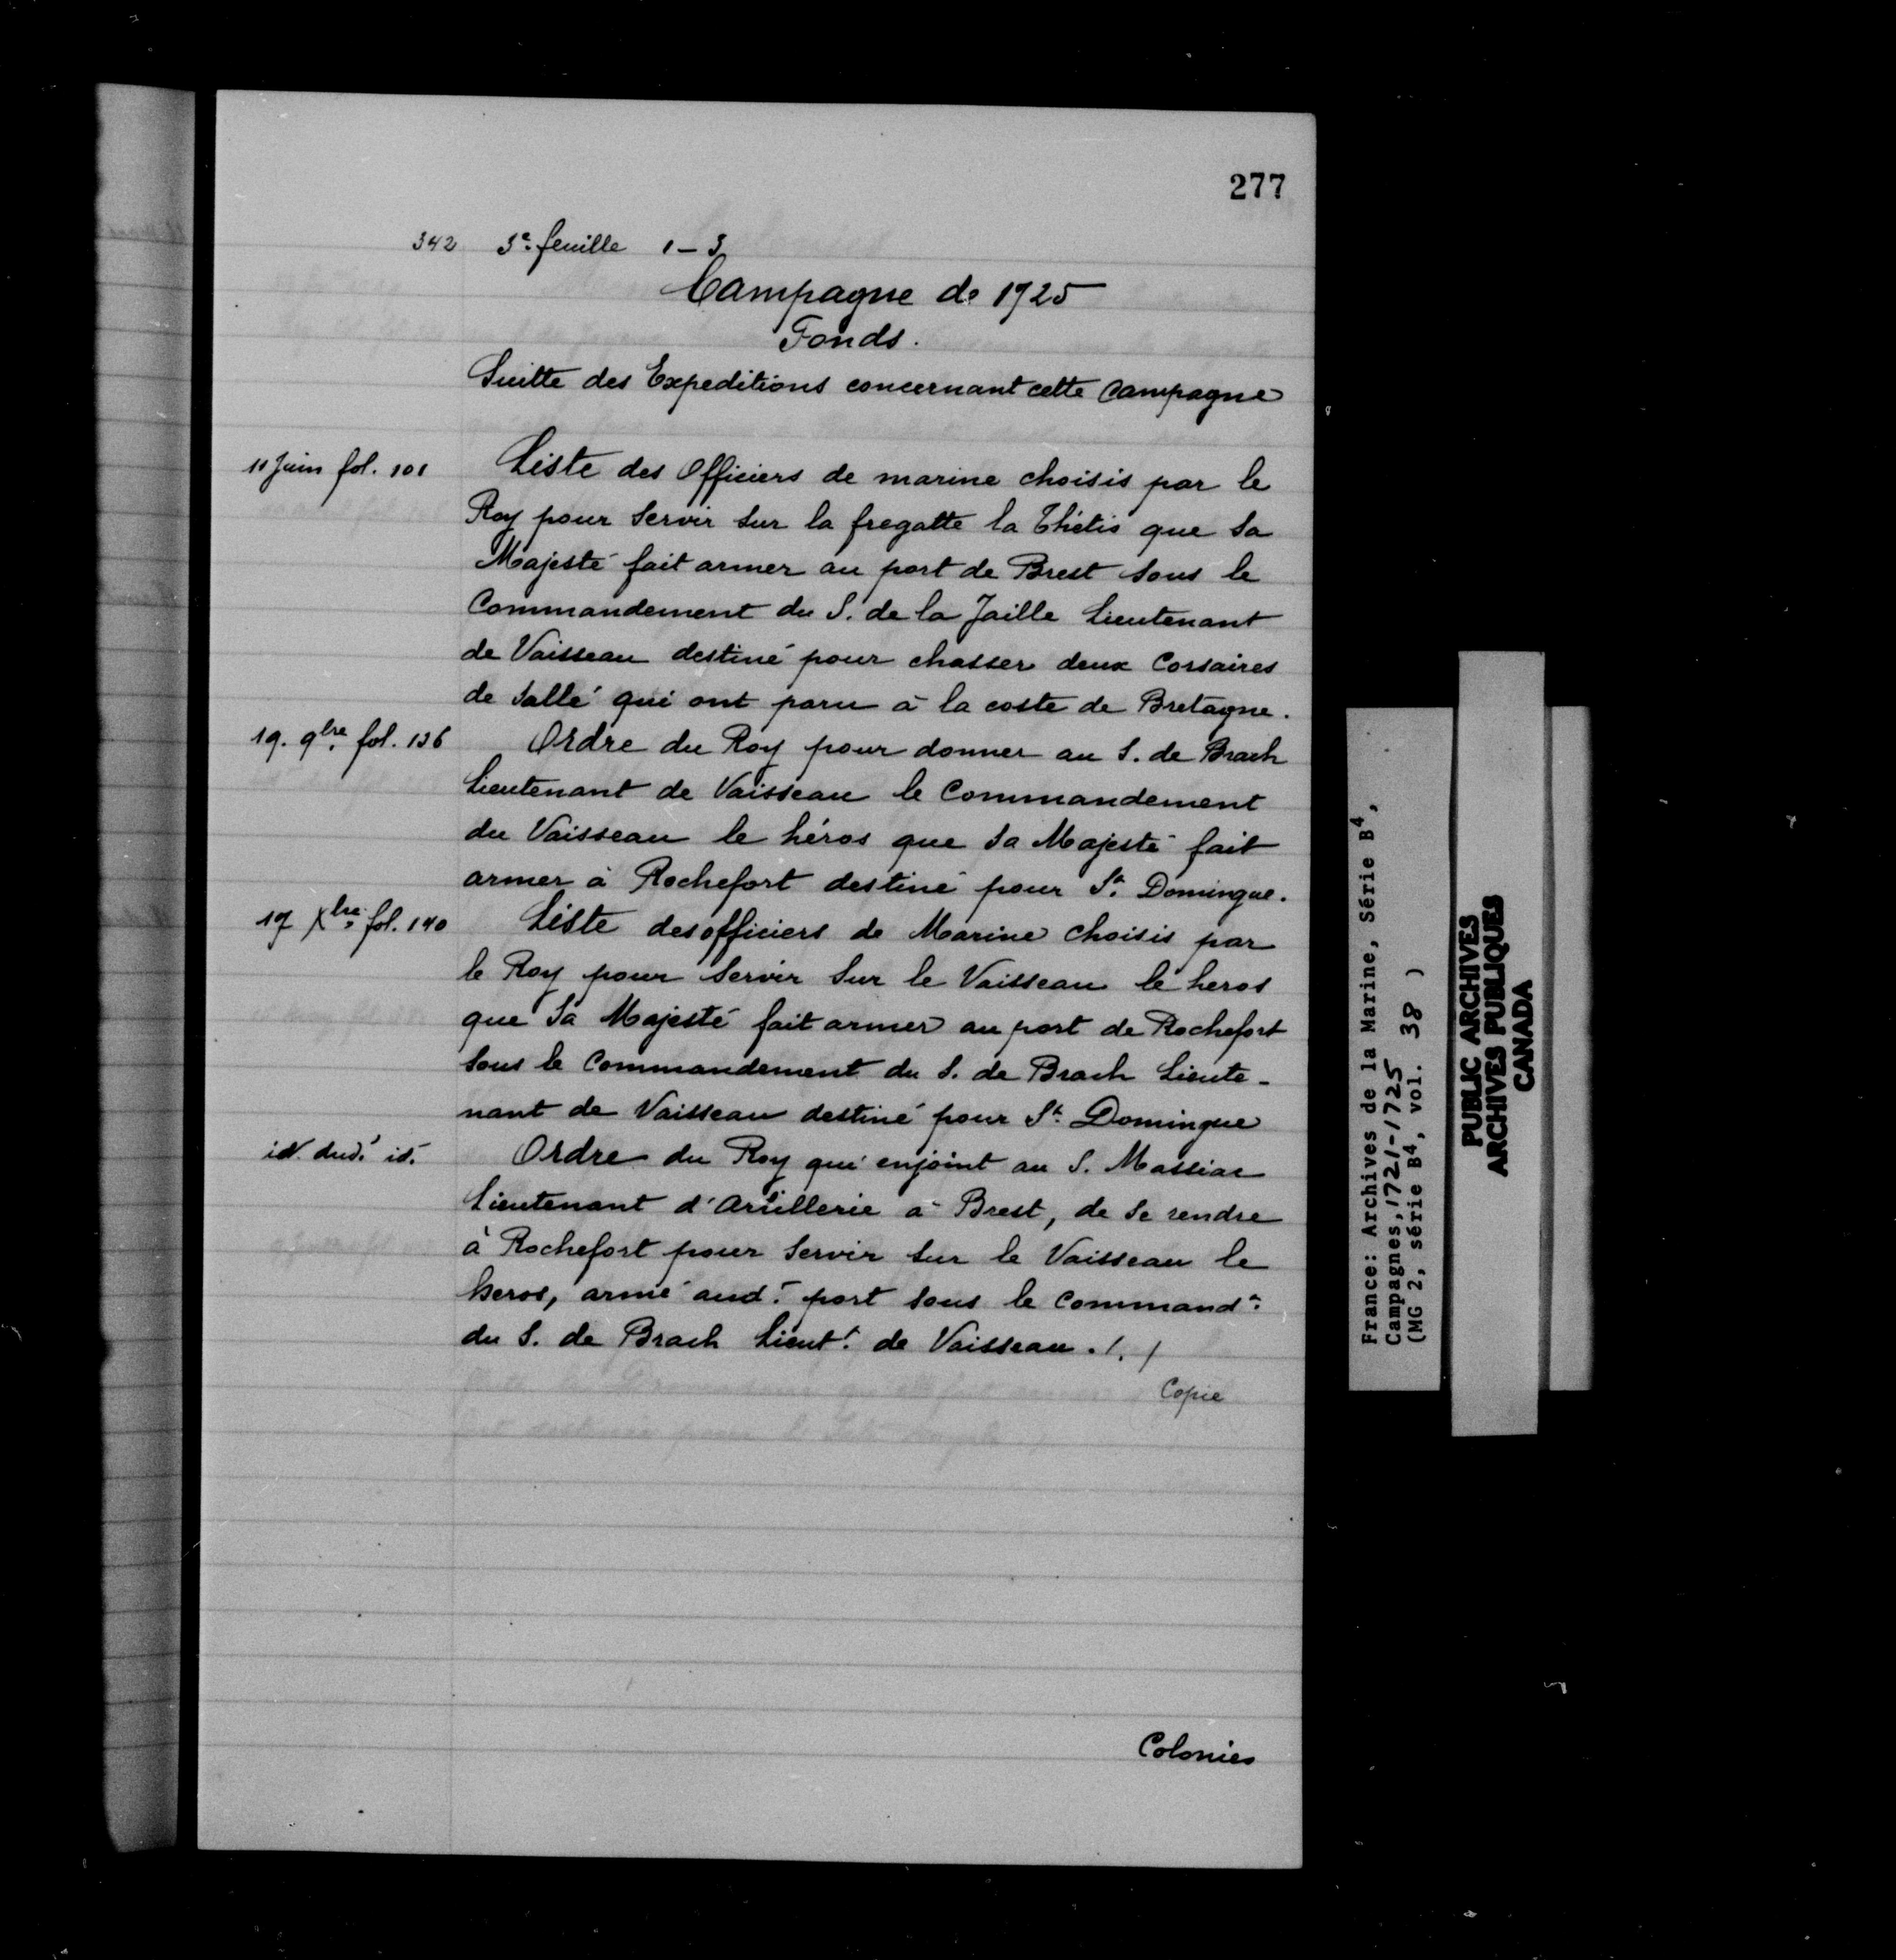 277
342 3e. feuille 1-3
Campagne de 1725
Fonds.
Suitte des Expeditions concernant cette campagne
11 Juin fol. 101 Liste des Officiers de marine choisis par le
Roy pour servir sur la fregatte la Thétis que sa
Majesté fait armer au port de Brest sous le
Commandement du S. de la Jaille Lieutenant
de Vaisseau destiné pour chasser deux Corsaires
de Sallé qui ont paru à la coste de Bretagne.
19. 9bre. fol. 136 Ordre du Roy pour donner au S. de Brach
Lieutenant de Vaisseau le Commandement
du Vaisseau le héros que sa Majesté fait
armer à Rochefort destiné pour St. Domingue.
17 Xbre. fol. 140 Liste des officiers de Marine choisis par
le Roy pour servir sur le Vaisseau le heros
que sa Majesté fait armer au port de Rochefort
sous le Commandement du S. de Brach Lieute-
nant de Vaisseau destiné pour St. Domingue
id. dud. id. Ordre du Roy qui enjoint au S. Massiac
Lieutenant d'Artillerie à Brest, de se rendre
à Rochefort pour servir sur le Vaisseau le
heros, armé aud. port sous le Command.
du S. de Brach Lieut. de Vaisseau ./. /
Copie
Colonies
France: Archives de la Marine, Série B4,
Campagnes, 1721-1725
(MG 2, série B4, vol. 38 )
PUBLIC ARCHIVES
ARCHIVES PUBLIQUES
CANADA